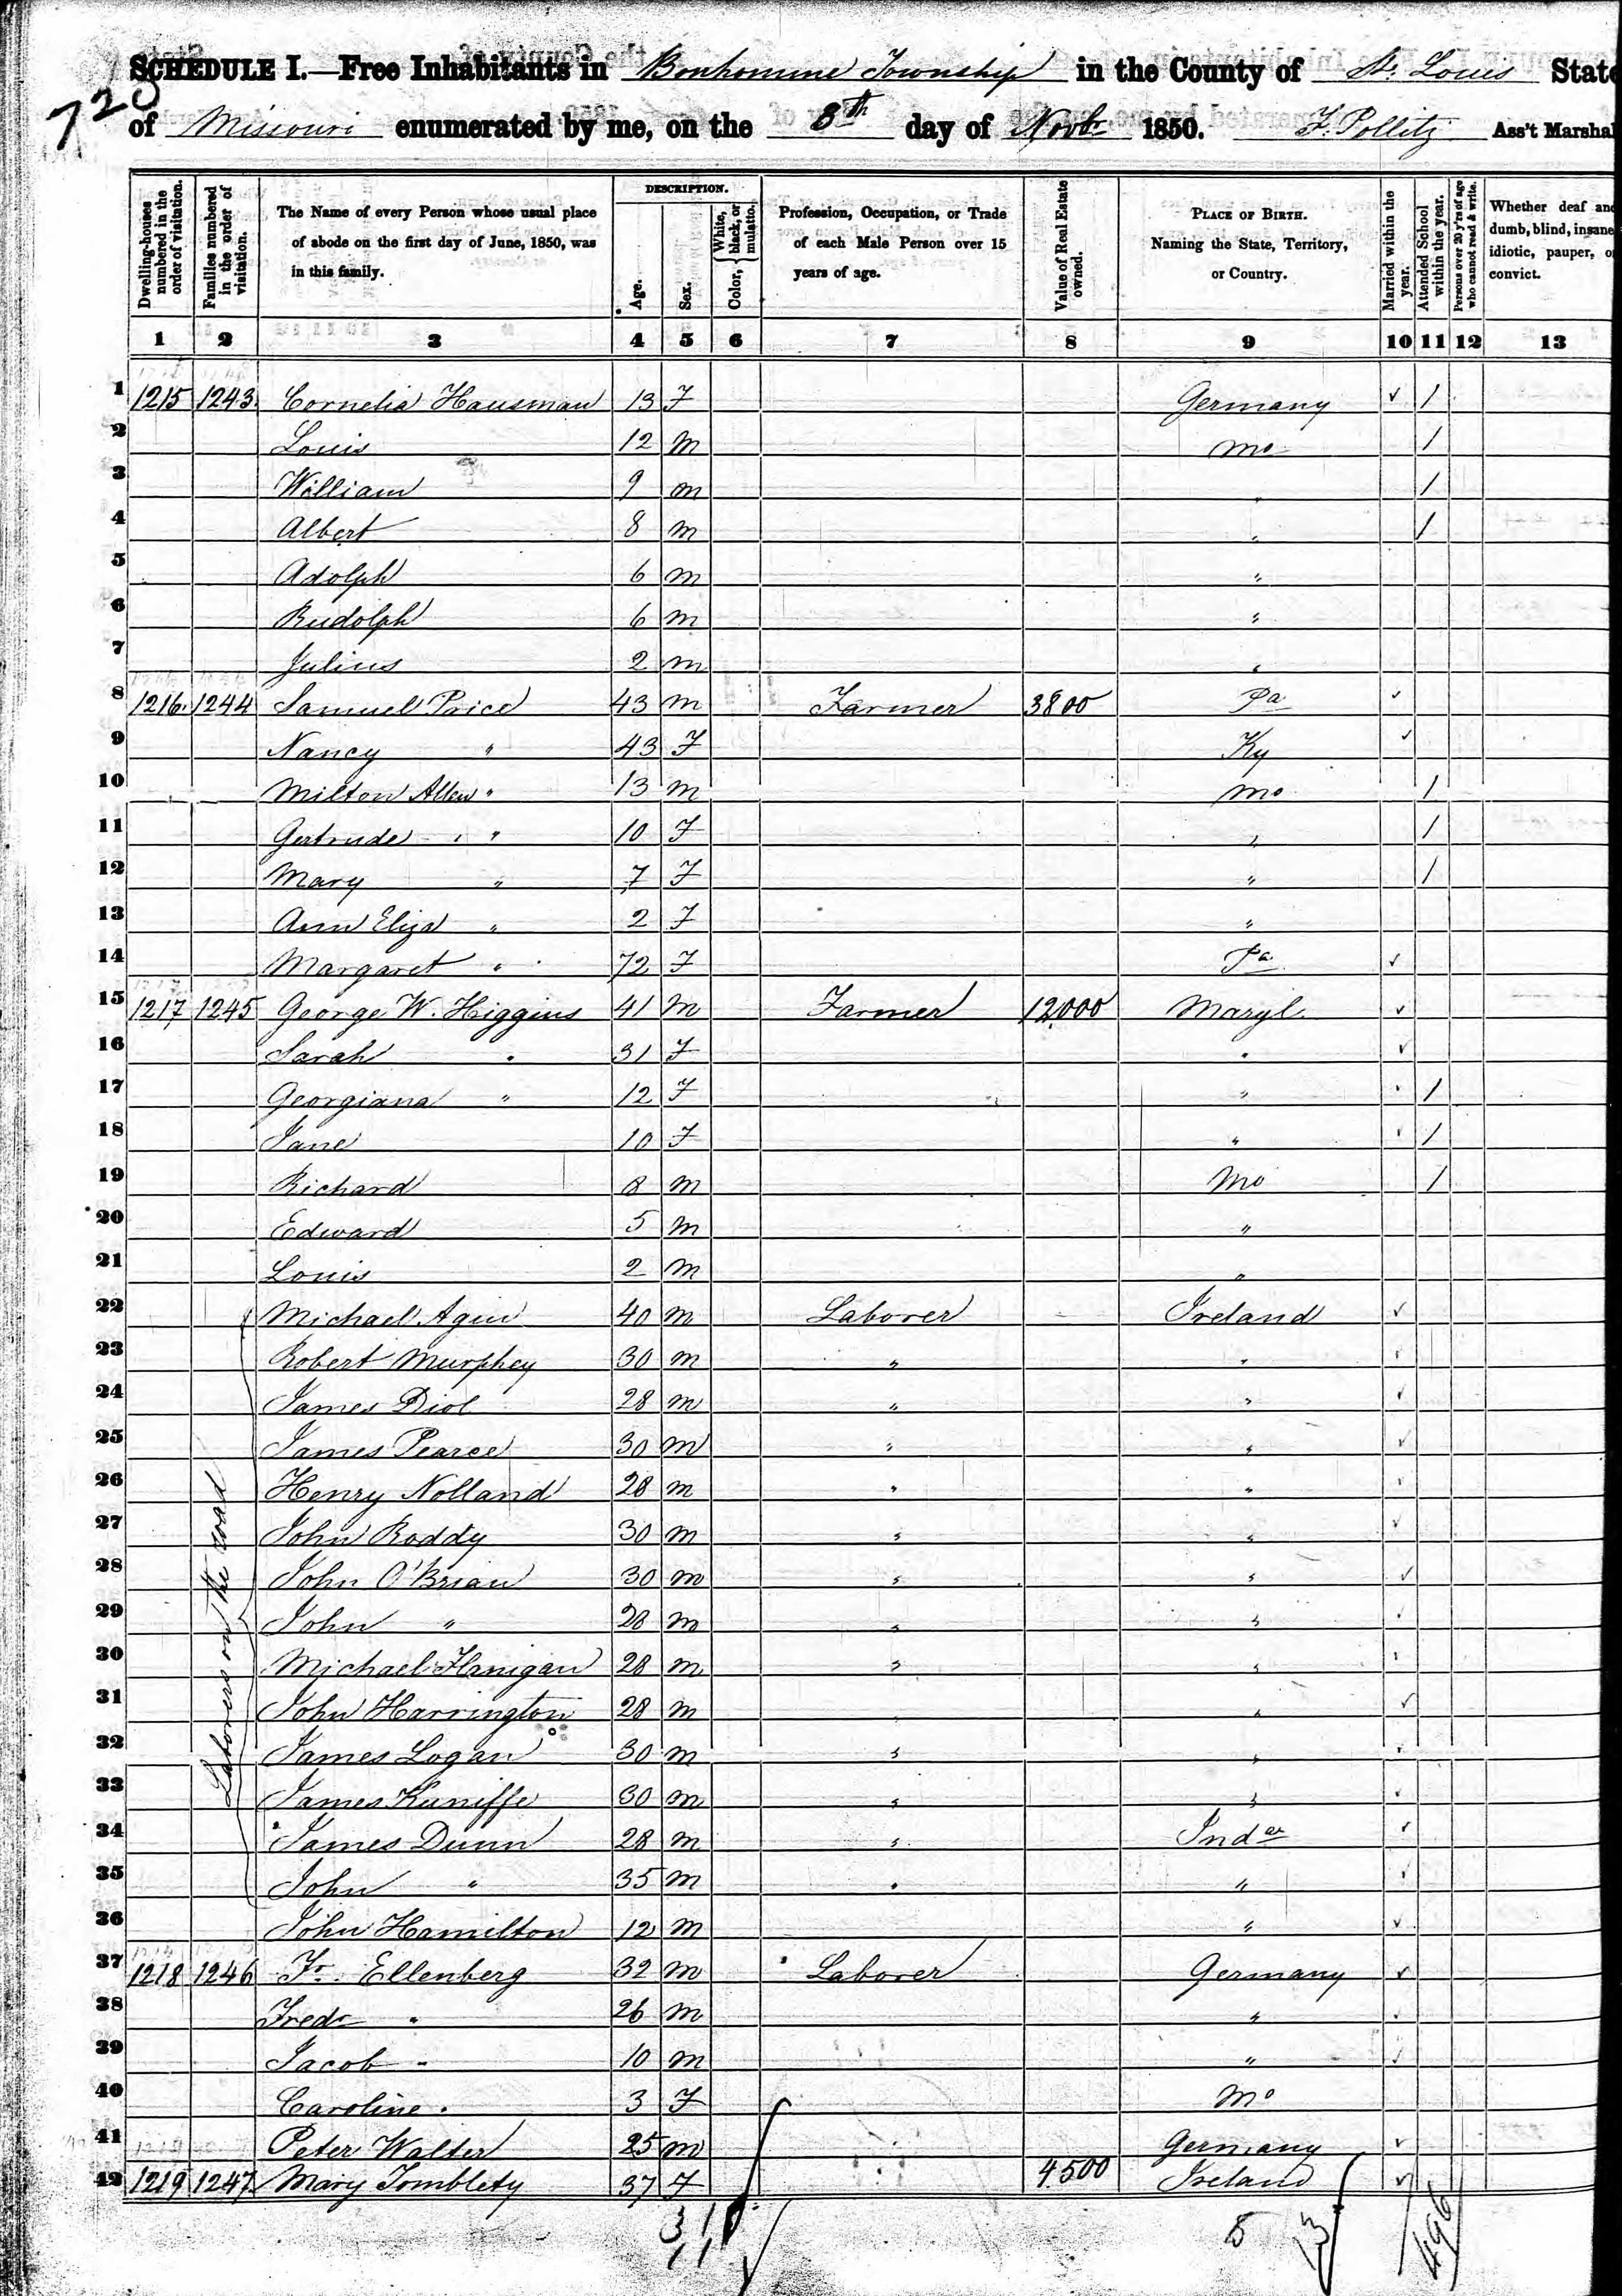 723
SCHEDULE I.—Free Inhabitants in Bonhomme Township in the County of St. Louis State
of Missouri enumerated by me, on the 8th day of Novbr 1850. F. Pollitz Ass't Marshal
Dwelling-houses numbered in the order of visitation.
Families numbered in the order of visitation.
The Name of every Person whose usual place of abode on the first day of June, 1850, was in this family.
DESCRIPTION.
Age.
Sex.
Color, { White, black, or mulatto.
Profession, Occupation, or Trade of each Male Person over 15 years of age.
Value of Real Estate owned.
PLACE OF BIRTH. Naming the State, Territory, or Country.
Married within the year.
Attended School within the year.
Persons over 20 y'rs of age who cannot read & write.
Whether deaf and dumb, blind, insane, idiotic, pauper, or convict.
1 2 3 4 5 6 7 8 9 10 11 12 13
1 1215 1243 Cornelia Hausman 13 F Germany ✓ /
2 Louis 12 M Mo /
3 William 9 M " /
4 Albert 8 M " /
5 Adolph 6 M "
6 Rudolph 6 M "
7 Julius 2 M "
8 1216 1244 Samuel Price 43 M Farmer 3800 Pa ✓
9 Nancy " 43 F Ky ✓
10 Milton Allen " 13 M Mo /
11 Gertrude " 10 F " /
12 Mary " 7 F " /
13 Ann Eliza " 2 F "
14 Margaret " 72 F Pa ✓
15 1217 1245 George W. Higgins 41 M Farmer 12000 Maryl. ✓
16 Sarah " 31 F " ✓
17 Georgiana " 12 F " /
18 Jane 10 F " /
19 Richard 8 M Mo /
20 Edward 5 M "
21 Louis 2 M "
Laborers on the road
22 Michael Agin 40 M Laborer Ireland ✓
23 Robert Murphey 30 M " "
24 James Diol 28 M " " ✓
25 James Pearce 30 M " " ✓
26 Henry Nolland 28 M " "
27 John Roddy 30 M " " ✓
28 John O'Brian 30 M " " ✓
29 John " 28 M " "
30 Michael Flanigan 28 M " "
31 John Harrington 28 M " " ✓
32 James Logan 30 M " "
33 James Kuniffe 30 M " "
34 James Dunn 28 M " Inda ✓
35 John " 35 M " "
36 John Hamilton 12 M " ✓
37 1218 1246 Fr. Ellenberg 32 M Laborer Germany ✓
38 Fredr " 26 M "
39 Jacob " 10 M " ✓
40 Caroline " 3 F Mo
41 Peter Walter 25 M Germany ✓
42 1219 1247 Mary Tomblety 37 F 4500 Ireland ✓
31
11
5
13
496